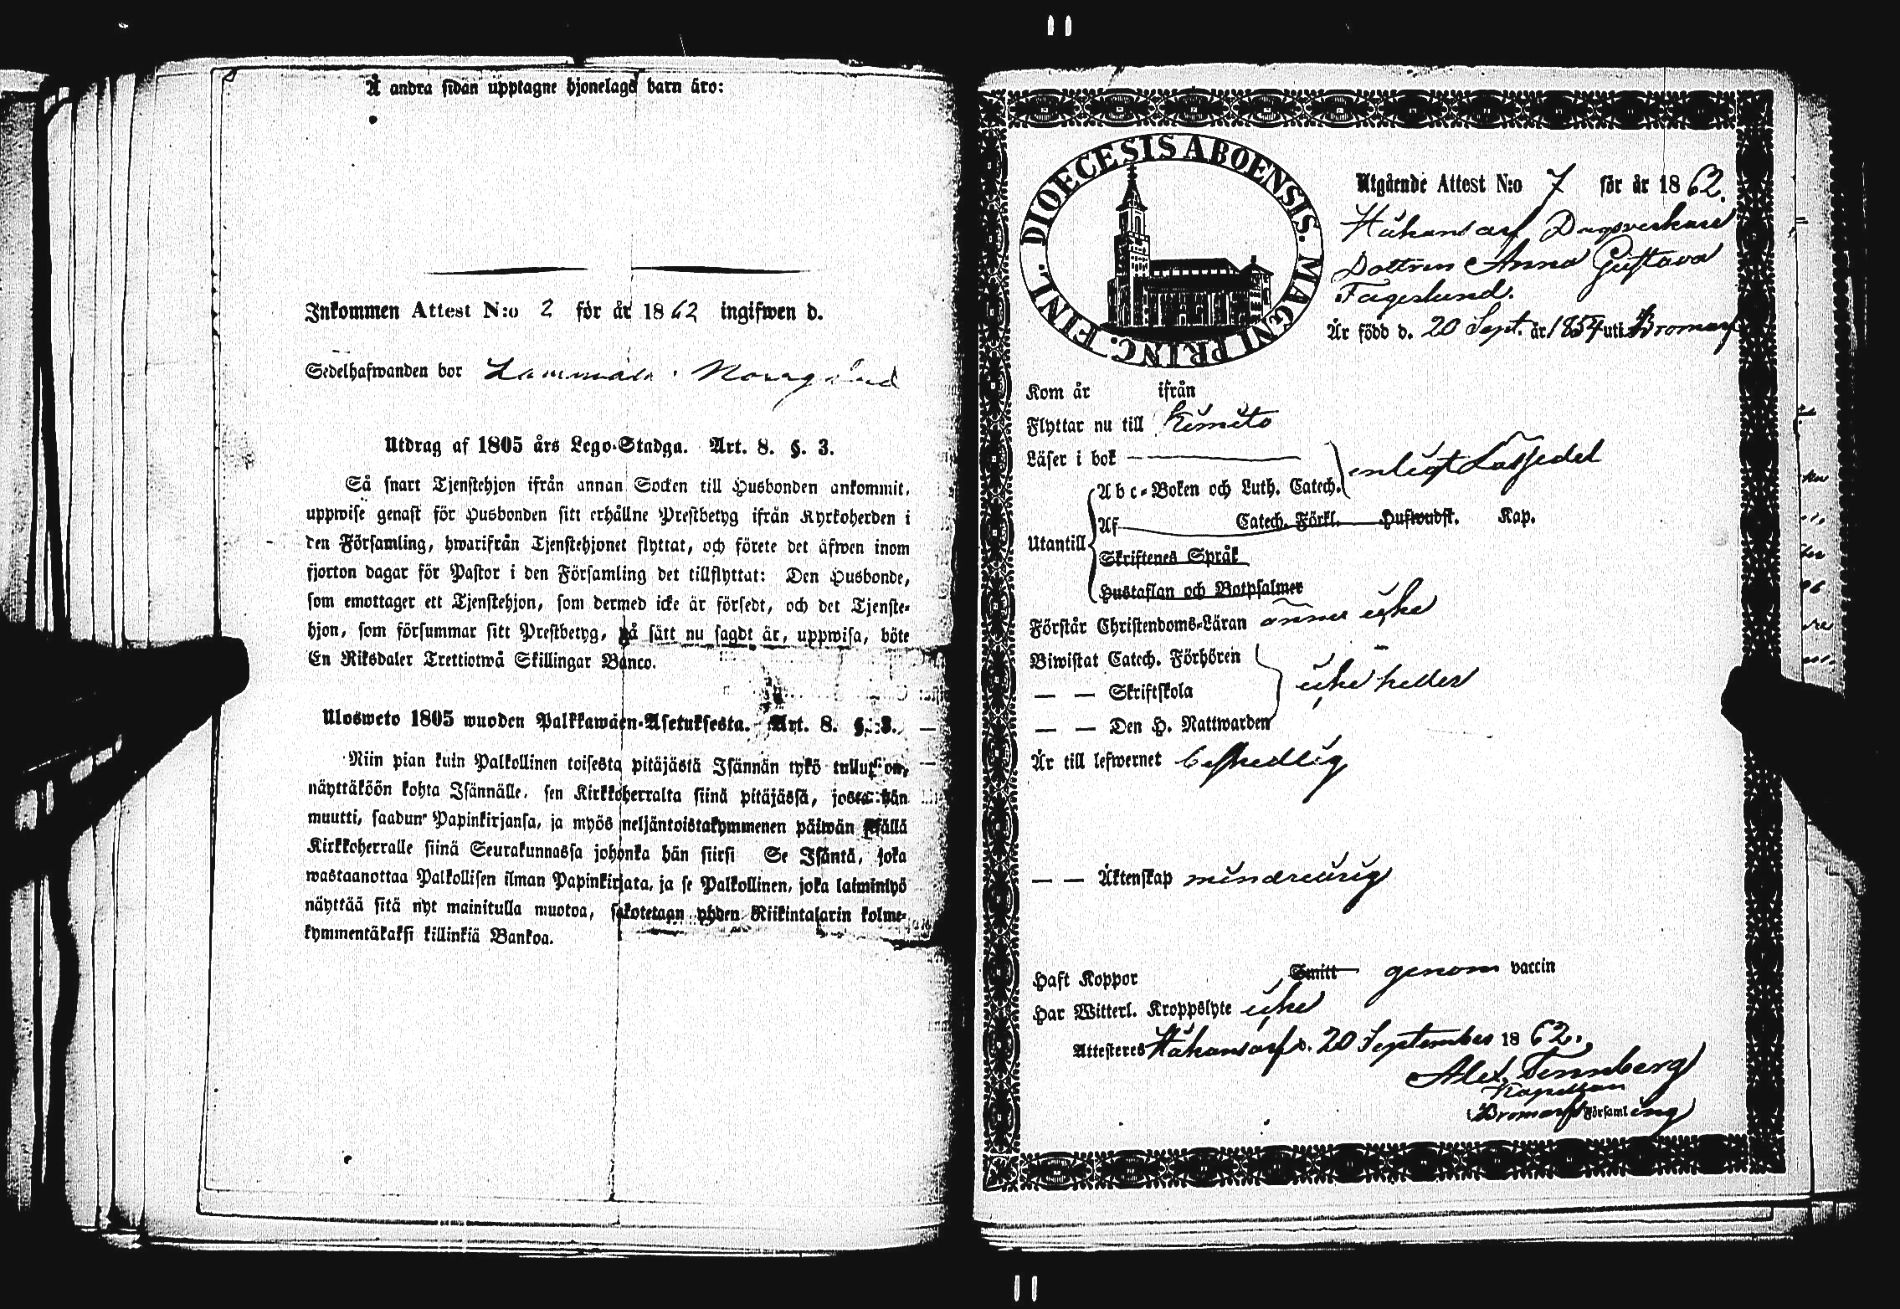 Å andra sidan upptagne hjonelags barn äro:
Inkommen Attest N:o 2 för år 1862 ingifwen d.
Sedelhafwanden bor
Utdrag af 1805 års Lego-Stadga. Art. 8. §. 3.
Så snart Tjenstehjon ifrån annan Socken till Husbonden ankommit,
uppwise genast för Husbonden sitt erhållne Prestbetyg ifrån Kyrkoherden i
den Församling, hwarifrån Tjenstehjonet flyttat, och förete det äfwen inom
fjorton dagar för Pastor i den Församling det tillflyttat: Den Husbonde,
som emottager ett Tjenstehjon, som dermed icke är försedt, och det Tjenste-
hjon, som försummar sitt Prestbetyg, på sätt nu sagdt är, uppwisa, böte
En Riksdaler Trettiotwå Skillingar Banco.
Ulosweto 1805 wuoden Palkkawäen-Asetuksesta. Art. 8. §. 3.
Niin pian kuin Palkollinen toisesta pitäjästä Isännän tykö tullut on,
näyttäköön kohta Isännälle, sen Kirkkoherralta siinä pitäjässä, josta hän
muutti, saadun Papinkirjansa, ja myös neljäntoistakymmenen päiwän sisällä
Kirkkoherralle siinä Seurakunnassa johonka hän siirsi Se Isäntä, joka
wastaanottaa Palkollisen ilman Papinkirjata, ja se Palkollinen, joka laiminlyö
näyttää sitä nyt mainitulla muotoa, sakotetaan yhden Riikintalarin kolme-
kymmentäkaksi killinkiä Bankoa.
DIOECESIS ABOENSIS. MAGNI PRINC. FINL.
Utgående Attest N:o 7 för år 1862.
Håkansarf Dagsverkare
Dottren Anna Gustava
Fagerlund.
Är född d. 20 Sept. år 1854 uti Bromarf
Kom år ifrån
Flyttar nu till Kimito
Läser i bok
enligt LäsSedel
Abc-Boken och Luth. Catech.
Utantill
Af Catech. Förkl. Hufwudst. Kap.
Skriftenes Språk
Hustaflan och Botpsalmer
Förstår Christendoms-Läran ännu icke
Biwistat Catech. Förhören
— — Skriftskola icke heller
— — Den H. Nattwarden
Är till lefwernet beskedlig
— — Äktenskap minderårig
Haft Koppor Smitt genom vaccin
Har Witterl. Kroppslyte icke
Attesteres Håkansarf d. 20 September 1862.
Alex. Tennberg
Kapellan
i Bromarf Församling